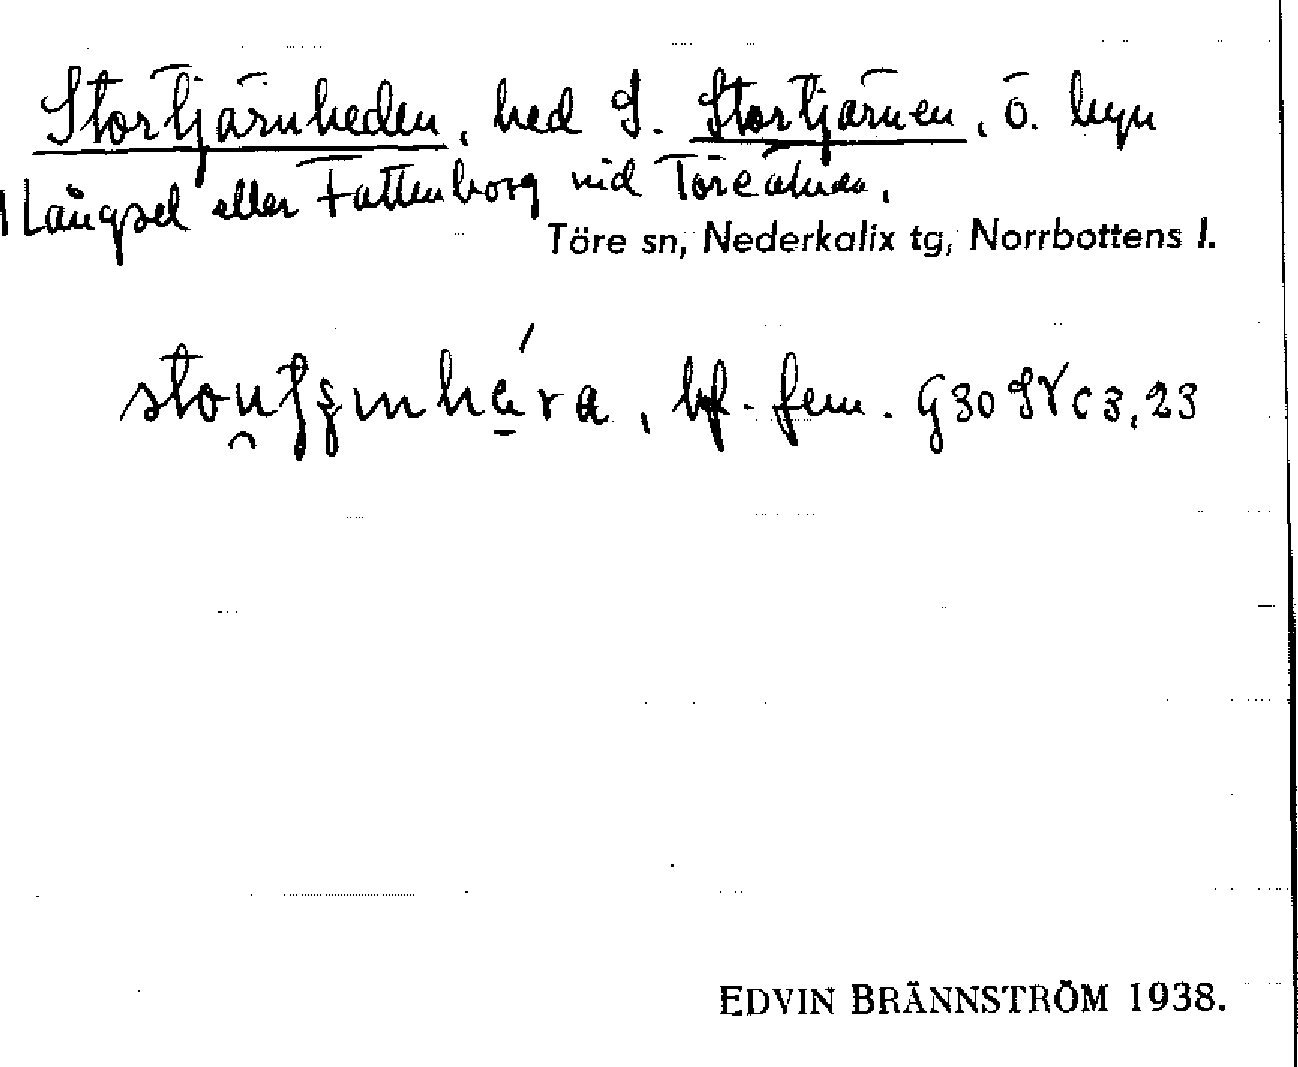 Stortjärnheden, hed S. Stortjärnen, ö. byn
Långsel eller Fattenborg vid Töreälven.
Töre sn, Nederkalix tg, Norrbottens l.
bf. fem. G30 SV c 3, 23
EDVIN BRÄNNSTRÖM 1938.